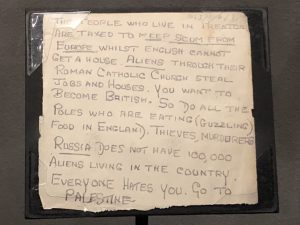 THE PEOPLE WHO LIVE IN
ARE TAXED TO KEEP SCUM FROM
EUROPE WHILST ENGLISH CANNOT
GET A HOUSE. ALIENS THROUGH THEIR
ROMAN CATHOLIC CHURCH STEAL
JOBS AND HOUSES. YOU WANT TO
BECOME BRITISH. SO DO ALL THE
POLES WHO ARE EATING (GUZZLING)
FOOD IN ENGLAND). THIEVES, MURDERERS
RUSSIA DOES NOT HAVE 100,000
ALIENS LIVING IN THE COUNTRY.
EVERYONE HATES YOU. GO TO
PALESTINE